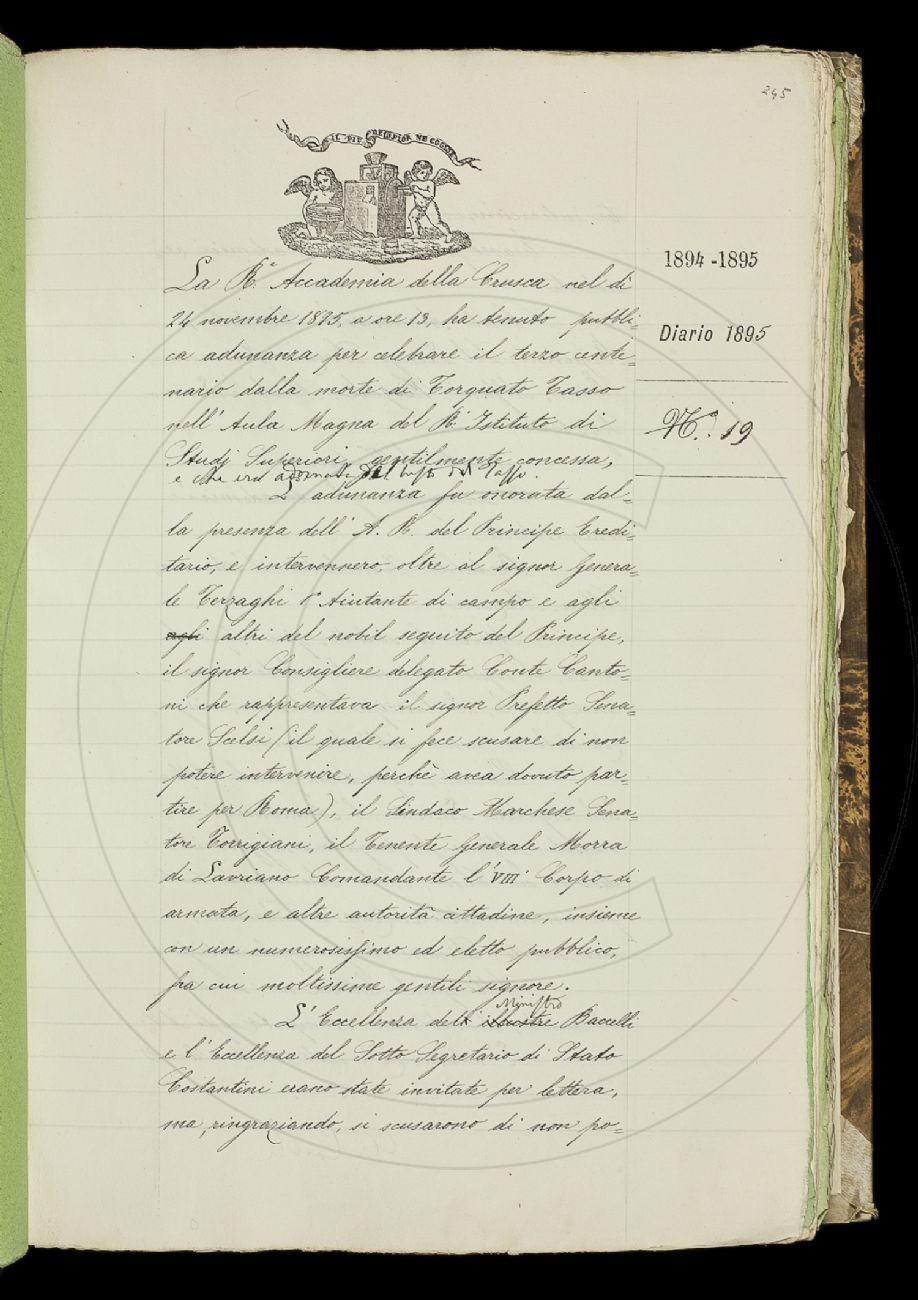 245
IL PIÙ BEL FIOR NE COGLIE
1894-1895
Diario 1895
N.° 19
La R.ª Accademia della Crusca nel dì
24 novembre 1895, a ore 13, ha tenuto pubbli=
ca adunanza per celebrare il terzo cente=
nario dalla morte di Torquato Tasso
nell'Aula Magna del R. Istituto di
Studj Superiori, gentilmente concessa,
e che era adornata del busto del Tasso.
L'adunanza fu onorata dal=
la presenza dell'A. R. del Principe Eredi=
tario, e intervennero, oltre al signor Genera=
le Terzaghi 1º Aiutante di campo e agli
agli altri del nobil seguito del Principe,
il signor Consigliere delegato Conte Canto=
ni che rappresentava il signor Prefetto Sena=
tore Scelsi (il quale si fece scusare di non
potere intervenire, perchè avea dovuto par=
tire per Roma), il Sindaco Marchese Sena=
tore Torrigiani, il Tenente Generale Morra
di Lavriano Comandante l'VIII Corpo di
armata, e altre autorità cittadine, insieme
con un numerosissimo ed eletto pubblico,
fra cui moltissime gentili signore.
Ministro
L'Eccellenza dell'illustre Baccelli
e l'Eccellenza del Sotto Segretario di Stato
Costantini erano state invitate per lettera,
ma, ringraziando, si scusarono di non po=